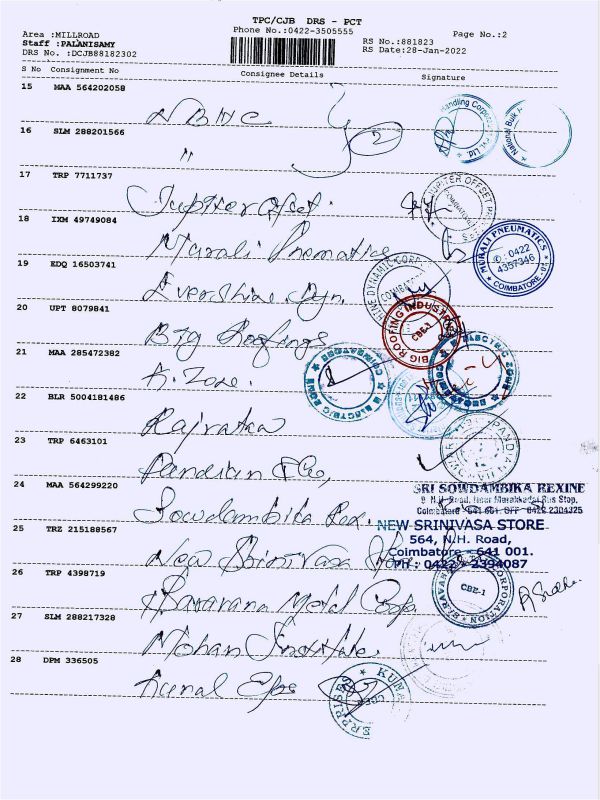 TPC/CJB DRS - PCT
Area :MILLROAD
Phone No.:0422-3505555
Page No.:2
Staff :PALANISAMY
RS No.:881823
DRS No. :DCJB88182302
RS Date:28-Jan-2022
S No Consignment No
Consignee Details
Signature
15 MAA 564202058
NBHC
2
Handling Corpor
Pvt Ltd
National Bulk
16 SLM 288201566
"
17 TRP 7711737
Jupiter Offset.
JUPITER OFFSET
COIMBATORE
18 IXM 49749084
Murali Pnematics
MURALI PNEUMATICS
✆: 0422
4357346
COIMBATORE
19 EDQ 16503741
Evershine Dyn.
INE DYNAMIC CORP
COIMBATORE
20 UPT 8079841
Big Roofings
BIG ROOFING INDUSTR
CBE-1
21 MAA 285472382
A. Zone.
ELECTRIC ZONE
COIMBATORE
ELECTRIC ZONE
22 BLR 5004181486
Rajratan
23 TRP 6463101
Pandian
PANDIA
24 MAA 564299220
Sowdambika Rex.
SRI SOWDAMBIKA REXINE
Coimbatore - 641 001. OFF 0422 2304325
25 TRZ 215188567
New Srinivasa
NEW SRINIVASA STORE
564, N.H. Road,
Coimbatore - 641 001.
PH : 0422 - 2394087
26 TRP 4398719
Saravana Metal Corp.
CORPORATION
CBE-1
27 SLM 288217328
Mohan
28 DPM 336505
Kunal Eps
KUNA
ERPRISES
CBE